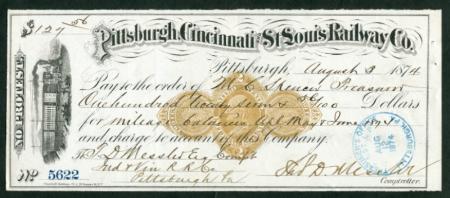 $127 56
Pittsburgh, Cincinnati and St. Louis Railway Co.
Pittsburgh, August 3 1874
Pay to the order of W. C. Spencer Treasurer
One hundred twenty seven & 56/100 Dollars
for mileage balances Apl May & June 1874
and charge to account of this Company.
To T. D. Messler Compt
Ind & Vin R.R. Co
Pittsburgh Pa
No 5622
NO PROTEST.
Comptroller.